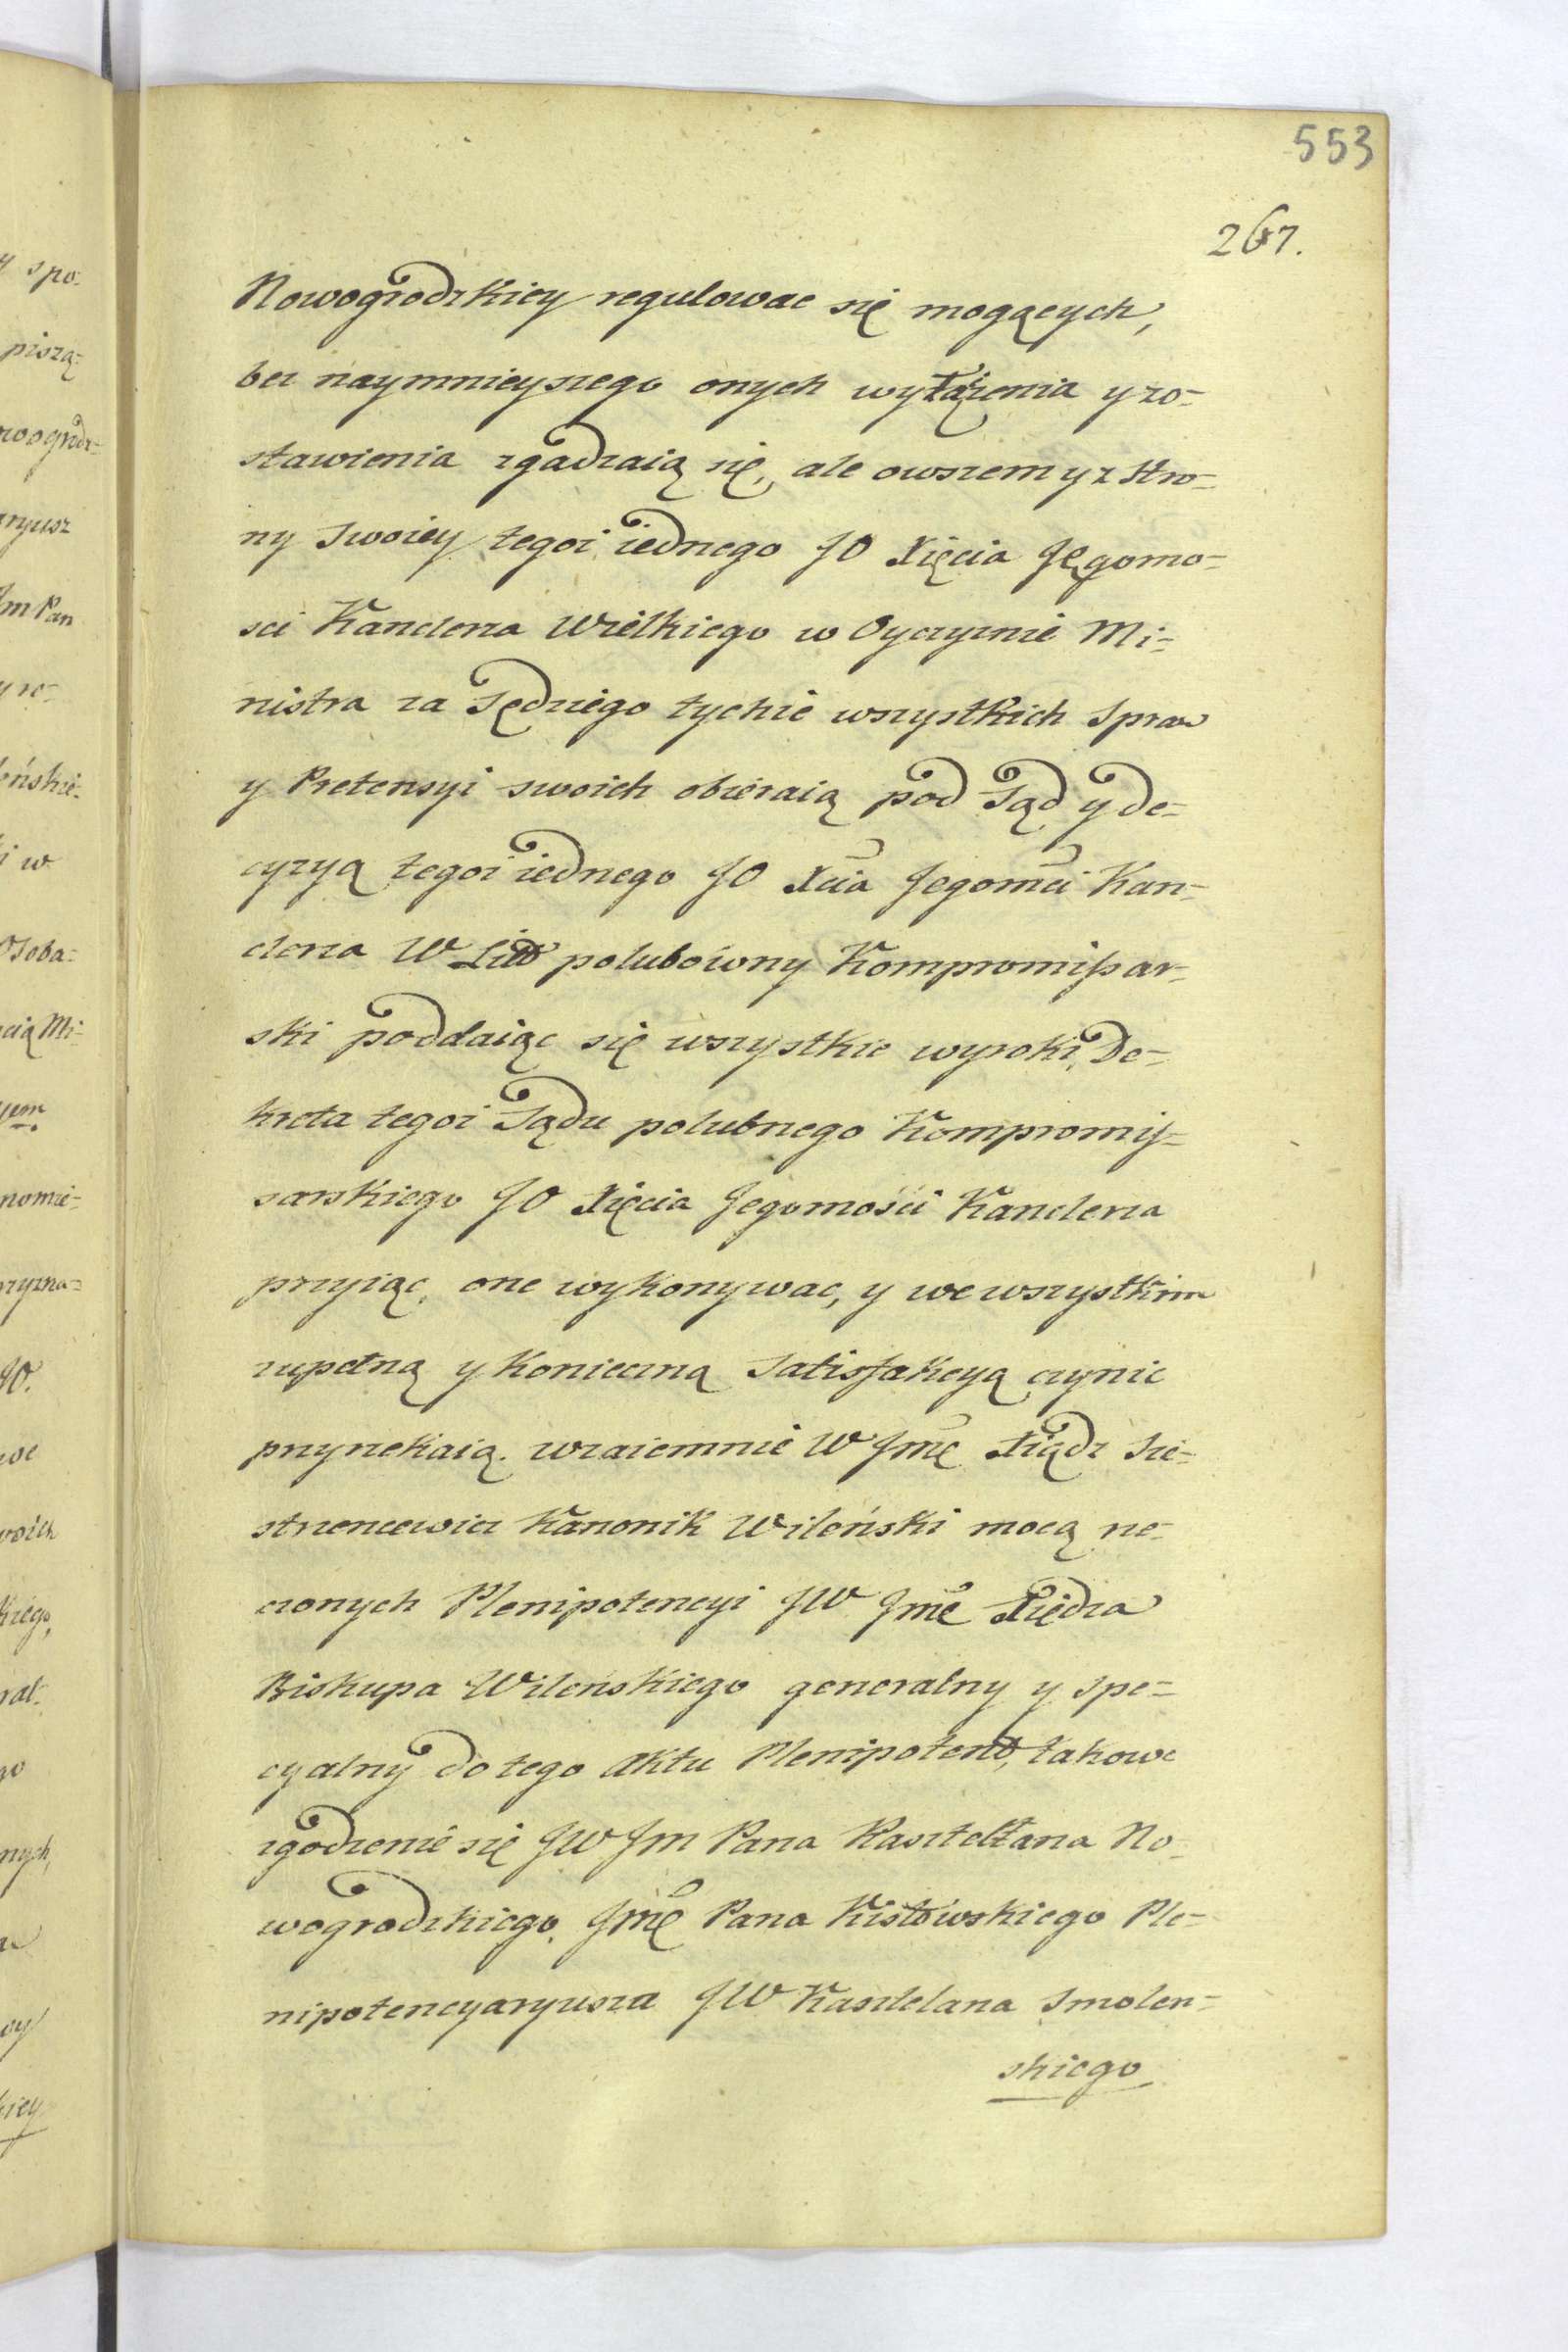 553
267.
Nowogrodzkiey regulowac się mogących,
bez naymnieyszego onych wyłązenia y zo-
stawienia zgadzaią się, ale owszem y z stro-
ny swoiey tegoż iednego JO Xięcia Jegomo-
sci Kanclerza Wielkiego w Oyczyznie Mi-
nistra za Sędziego tychże wszystkich spraw
y Pretensyi swoich obieraią pod Sąd y de-
cyzyą tegoż iednego JO Xcia Jegomci Kan-
clerza W Litt polubowny Kompromissar-
ski poddaiąc się wszystkie wyroki, De-
kreta tegoż Sądu polubnego Kompromis-
sarskiego JO Xięcia Jegomości Kanclerza
przyiąc, one wykonywac, y we wszystkim
zupełną y konieczną Satisfakcyą czynic
przyrzekaią. wzaiemnie W Jmc Xiądz Sie-
strzencewicz Kanonik Wileński mocą rze-
czonych Plenipotencyi JW Jmc Xiędza
Biskupa Wilenskiego generalny y spe-
cyalny do tego Aktu Plenipotent, takowe
zgodzenie się JW Jm Pana Kasztellana No-
wogrodzkiego, Jmc Pana Kistowskiego Ple-
nipotencyaryusza JW Kasztelana Smolen-
skiego